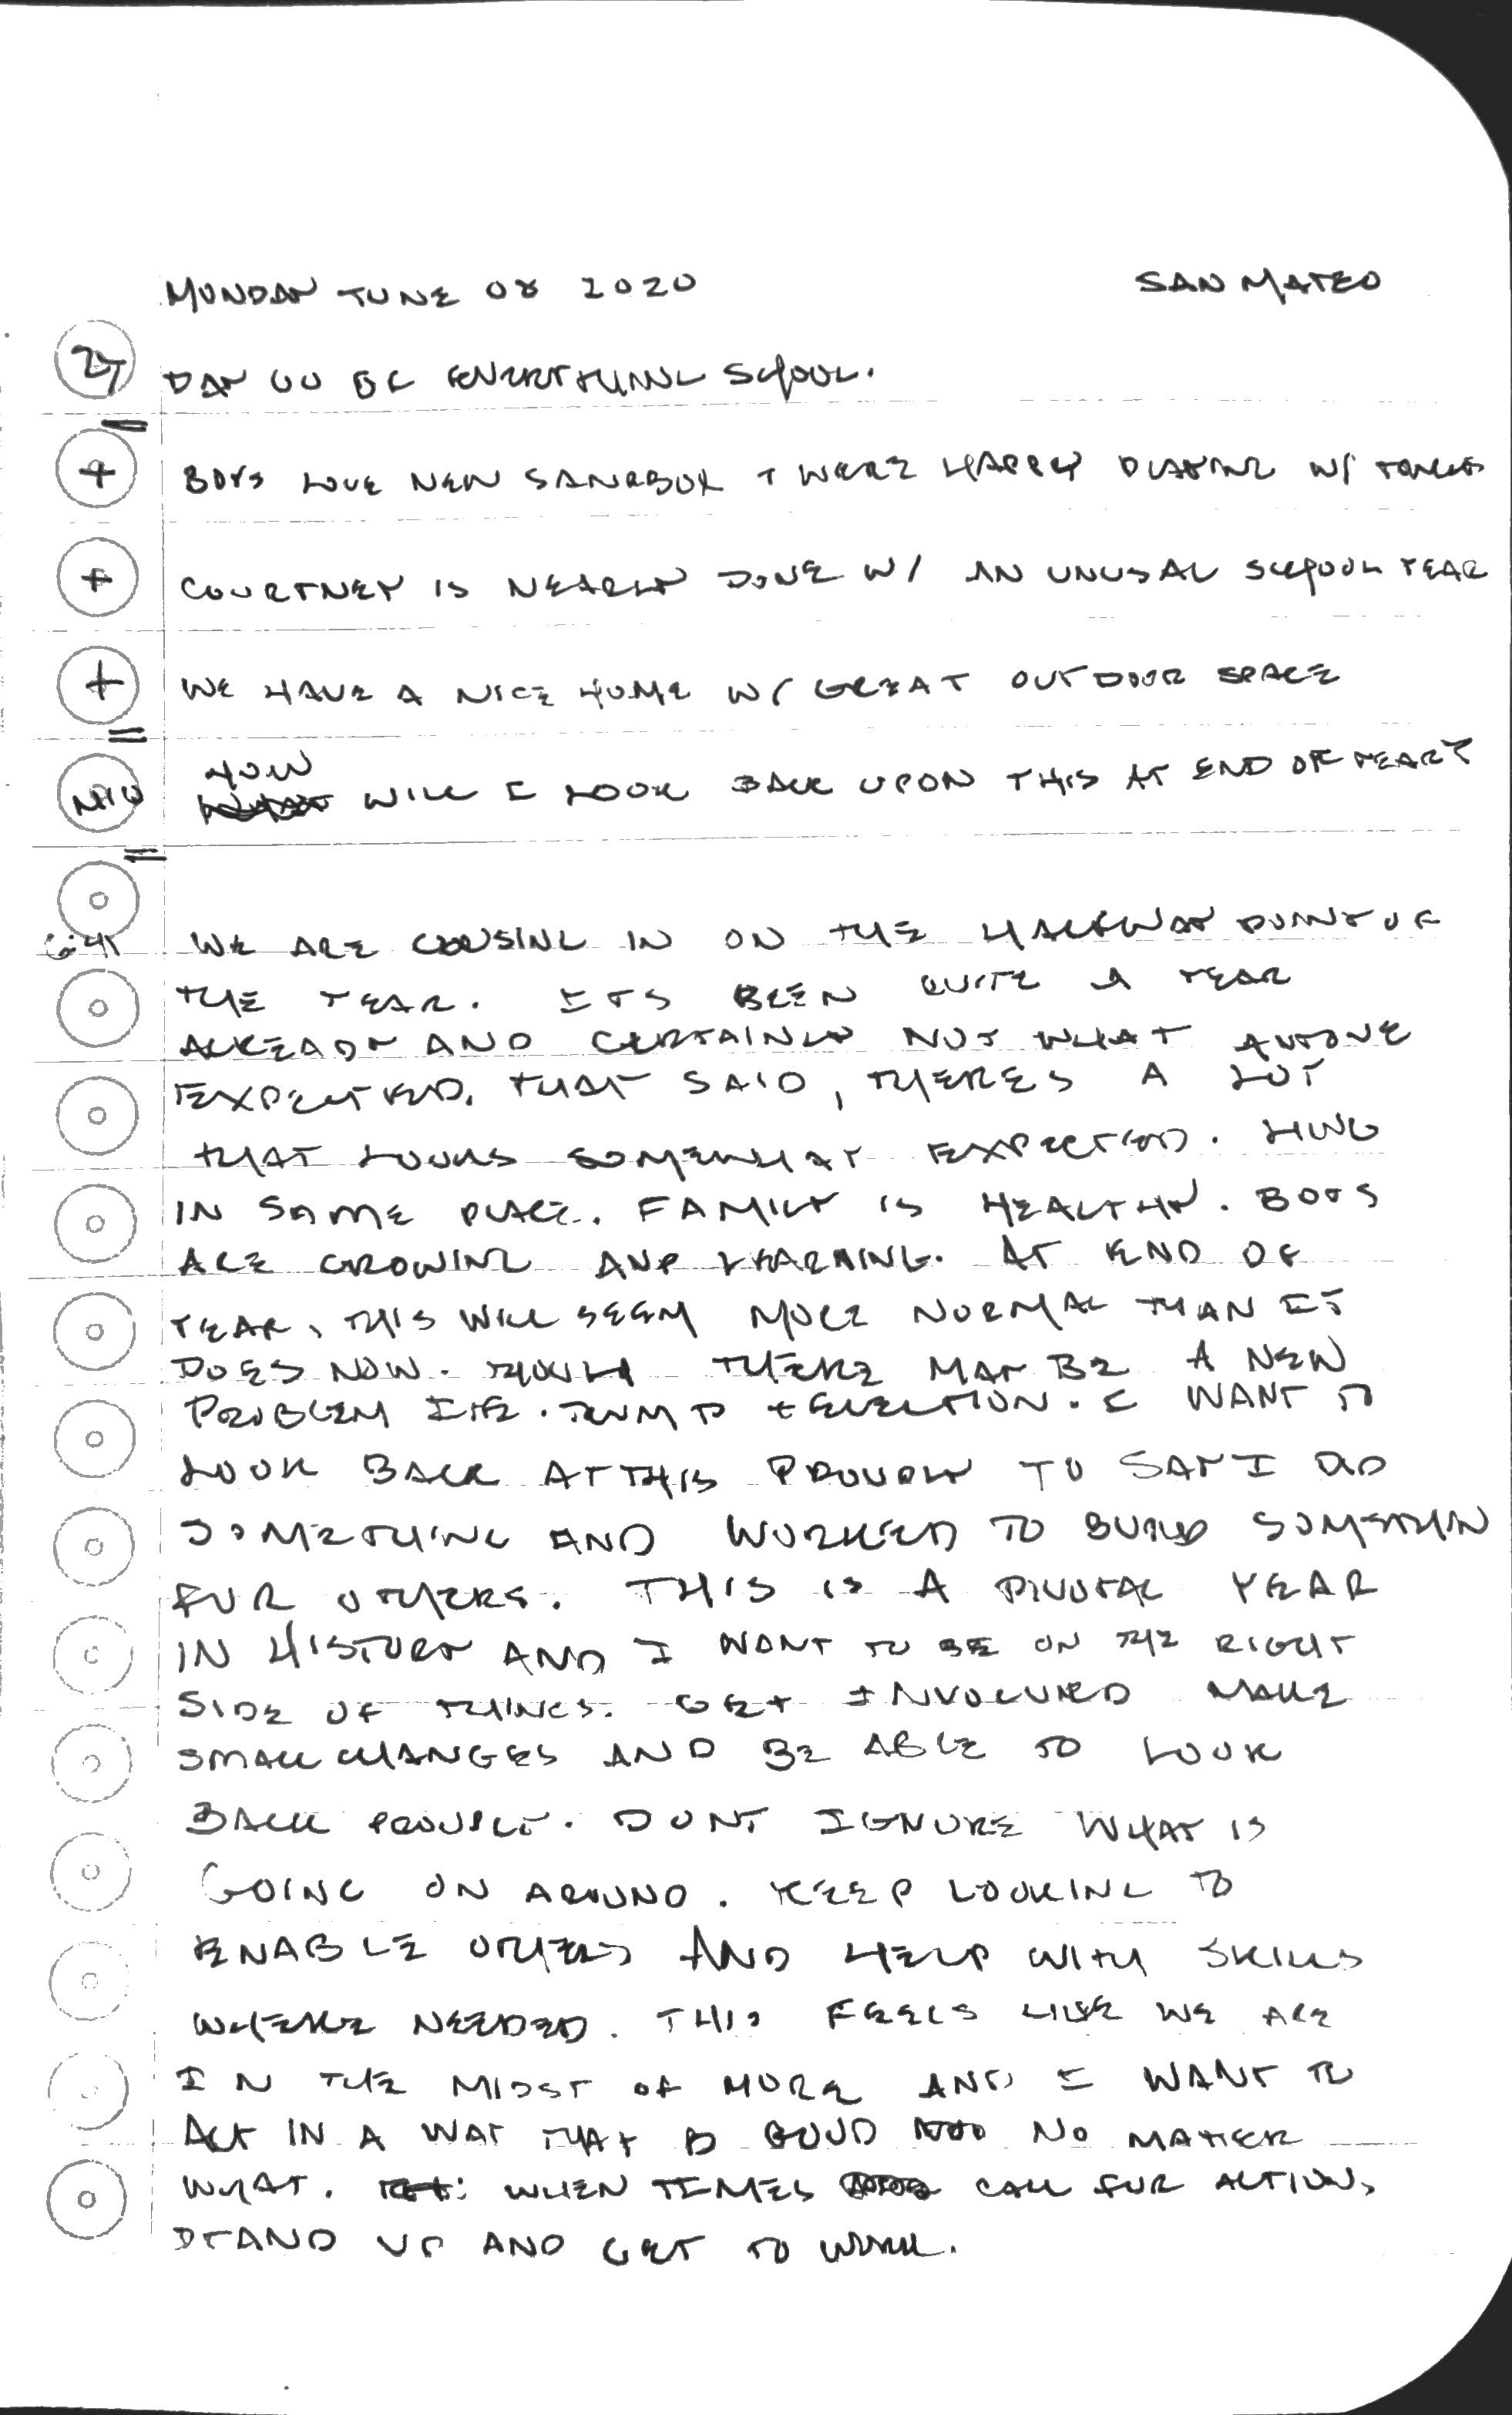 MONDAY JUNE 08 2020 SAN MATEO
27 DAY 60 OF EVERYTHING SCHOOL.
+ BOYS LOVE NEW SANDBOX + WERE HAPPY PLAYING W/
+ COURTNEY IS NEARLY DONE W/ AN UNUSAL SCHOOL YEAR
+ WE HAVE A NICE HOME W/ GREAT OUTDOOR SPACE
HOW
WILL I LOOK BACK UPON THIS AT END OF YEAR?
6:41 WE ARE CLOSING IN ON THE HALFWAY POINT OF
THE YEAR. ITS BEEN QUITE A YEAR
ALREADY AND CERTAINLY NOT WHAT ANYONE
EXPECTED. THAT SAID, THERES A LOT
THAT LOOKS SOMEWHAT EXPECTED. LIVING
IN SAME PLACE. FAMILY IS HEALTHY. BOYS
ARE GROWING AND LEARNING. AT END OF
YEAR, THIS WILL SEEM MORE NORMAL THAN IT
DOES NOW. THOUGH THERE MAY BE A NEW
PROBLEM I.E. TRUMP + ELECTION. I WANT TO
LOOK BACK AT THIS PROUDLY TO SAY I DID
SOMETHING AND WORKED TO BUILD SOMETHIN
FOR OTHERS. THIS IS A PIVOTAL YEAR
IN HISTORY AND I WANT TO BE ON THE RIGHT
SIDE OF THINGS. GET INVOLVED MAKE
SMALL CHANGES AND BE ABLE TO LOOK
BACK PROUDLY. DONT IGNORE WHAT IS
GOING ON AROUND. KEEP LOOKING TO
ENABLE OTHERS AND HELP WITH SKILLS
WHERE NEEDED. THIS FEELS LIKE WE ARE
IN THE MIDST OF MORE AND I WANT TO
ACT IN A WAY THAT IS GOOD NO MATTER
WHAT. WHEN TIMES CALL FOR ACTION,
STAND UP AND GET TO WORK.